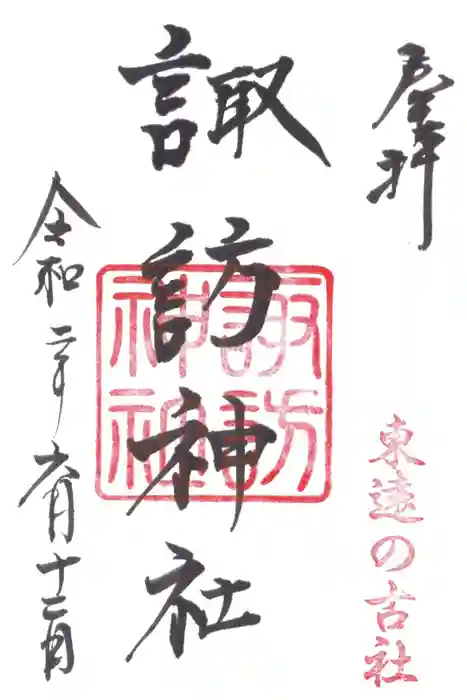 奉拝
東遠の古社
諏訪神社
諏訪
神社
令和二年六月十二日